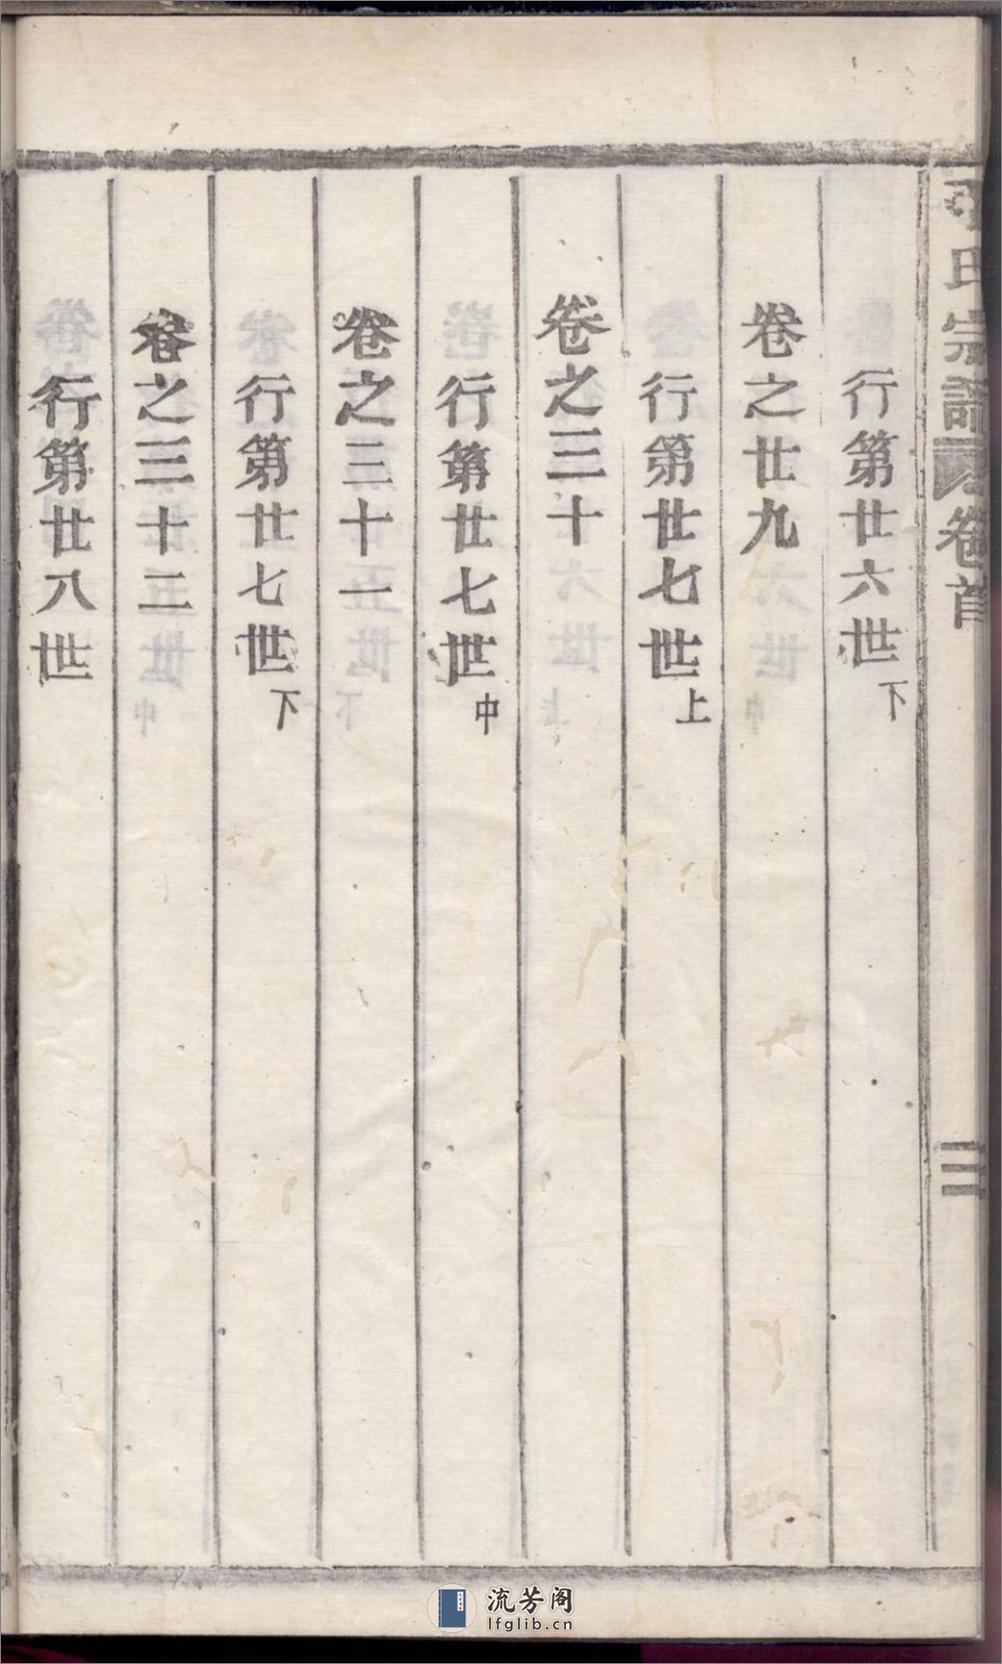 氏宗譜 卷首 三
行第廿六世下
卷之廿九
行第廿七世上
卷之三十
行第廿七世中
卷之三十一
行第廿七世下
卷之三十二
行第廿八世
流芳阁
lfglib.cn